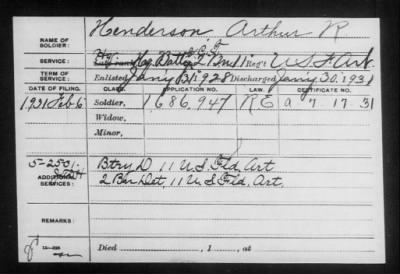 NAME OF SOLDIER: Henderson, Arthur R
SERVICE: Hq Hq Batty & C.T. 2 Bn 11 Reg't U.S. F. Art.
Enlisted Jany 31 1928 Discharged Jany. 30, 1931
DATE OF FILING. CLASS. APPLICATION NO. LAW. CERTIFICATE NO.
1931 Feb 6 Soldier, 1686,947 RE a 7 17 31
Widow,
Minor,
5-2501-
ADDITIONAL SERVICES: Btry D 11 U.S. Fld. Art
2 Bn Det, 11 U.S. Fld. Art.
REMARKS:
Died , 1 , at